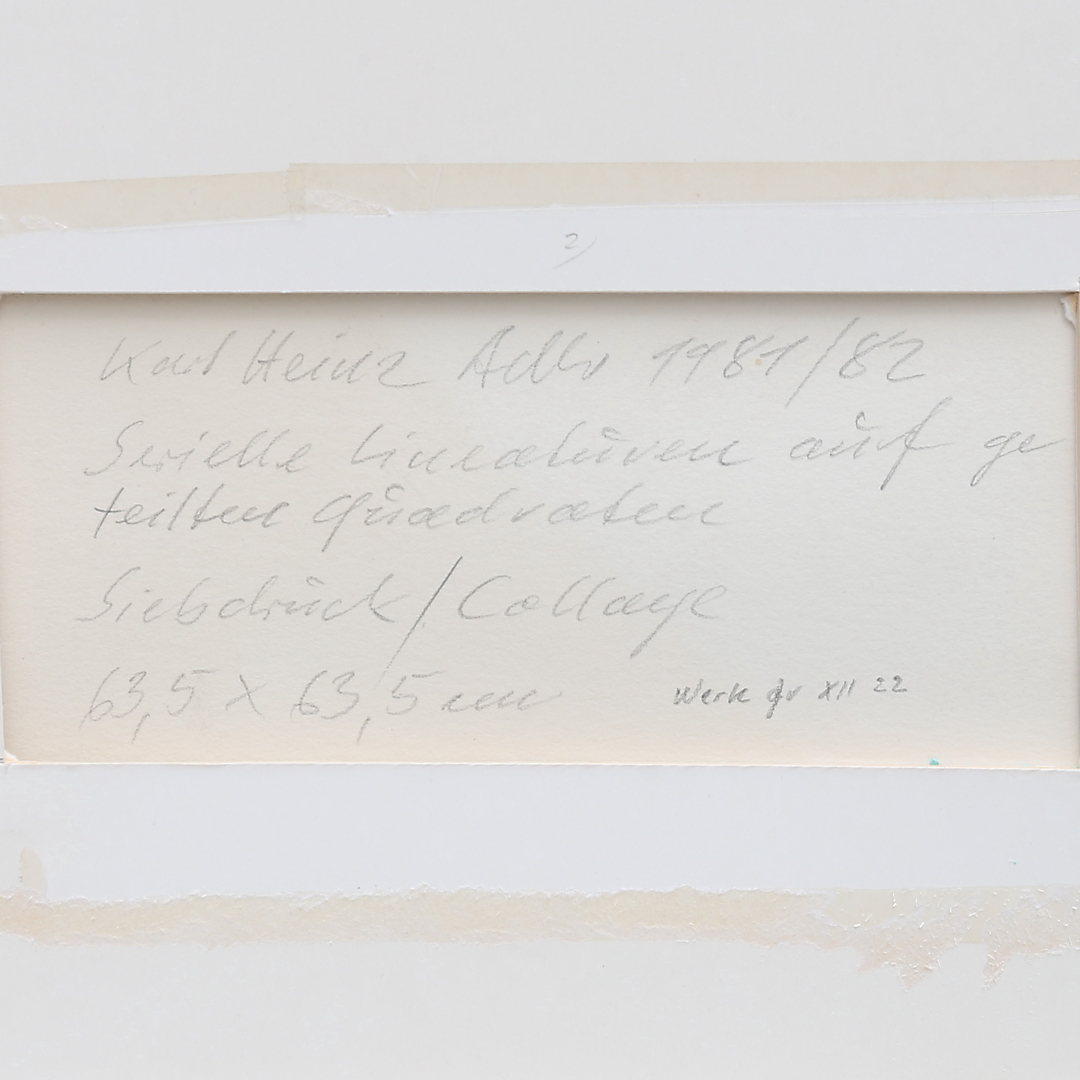 2)
Karl Heinz Adler 1981/82
Serielle Lineaturen auf ge
teilten Quadraten
Siebdruck/Collage
63,5 x 63,5 cm
Werk gr XII 22